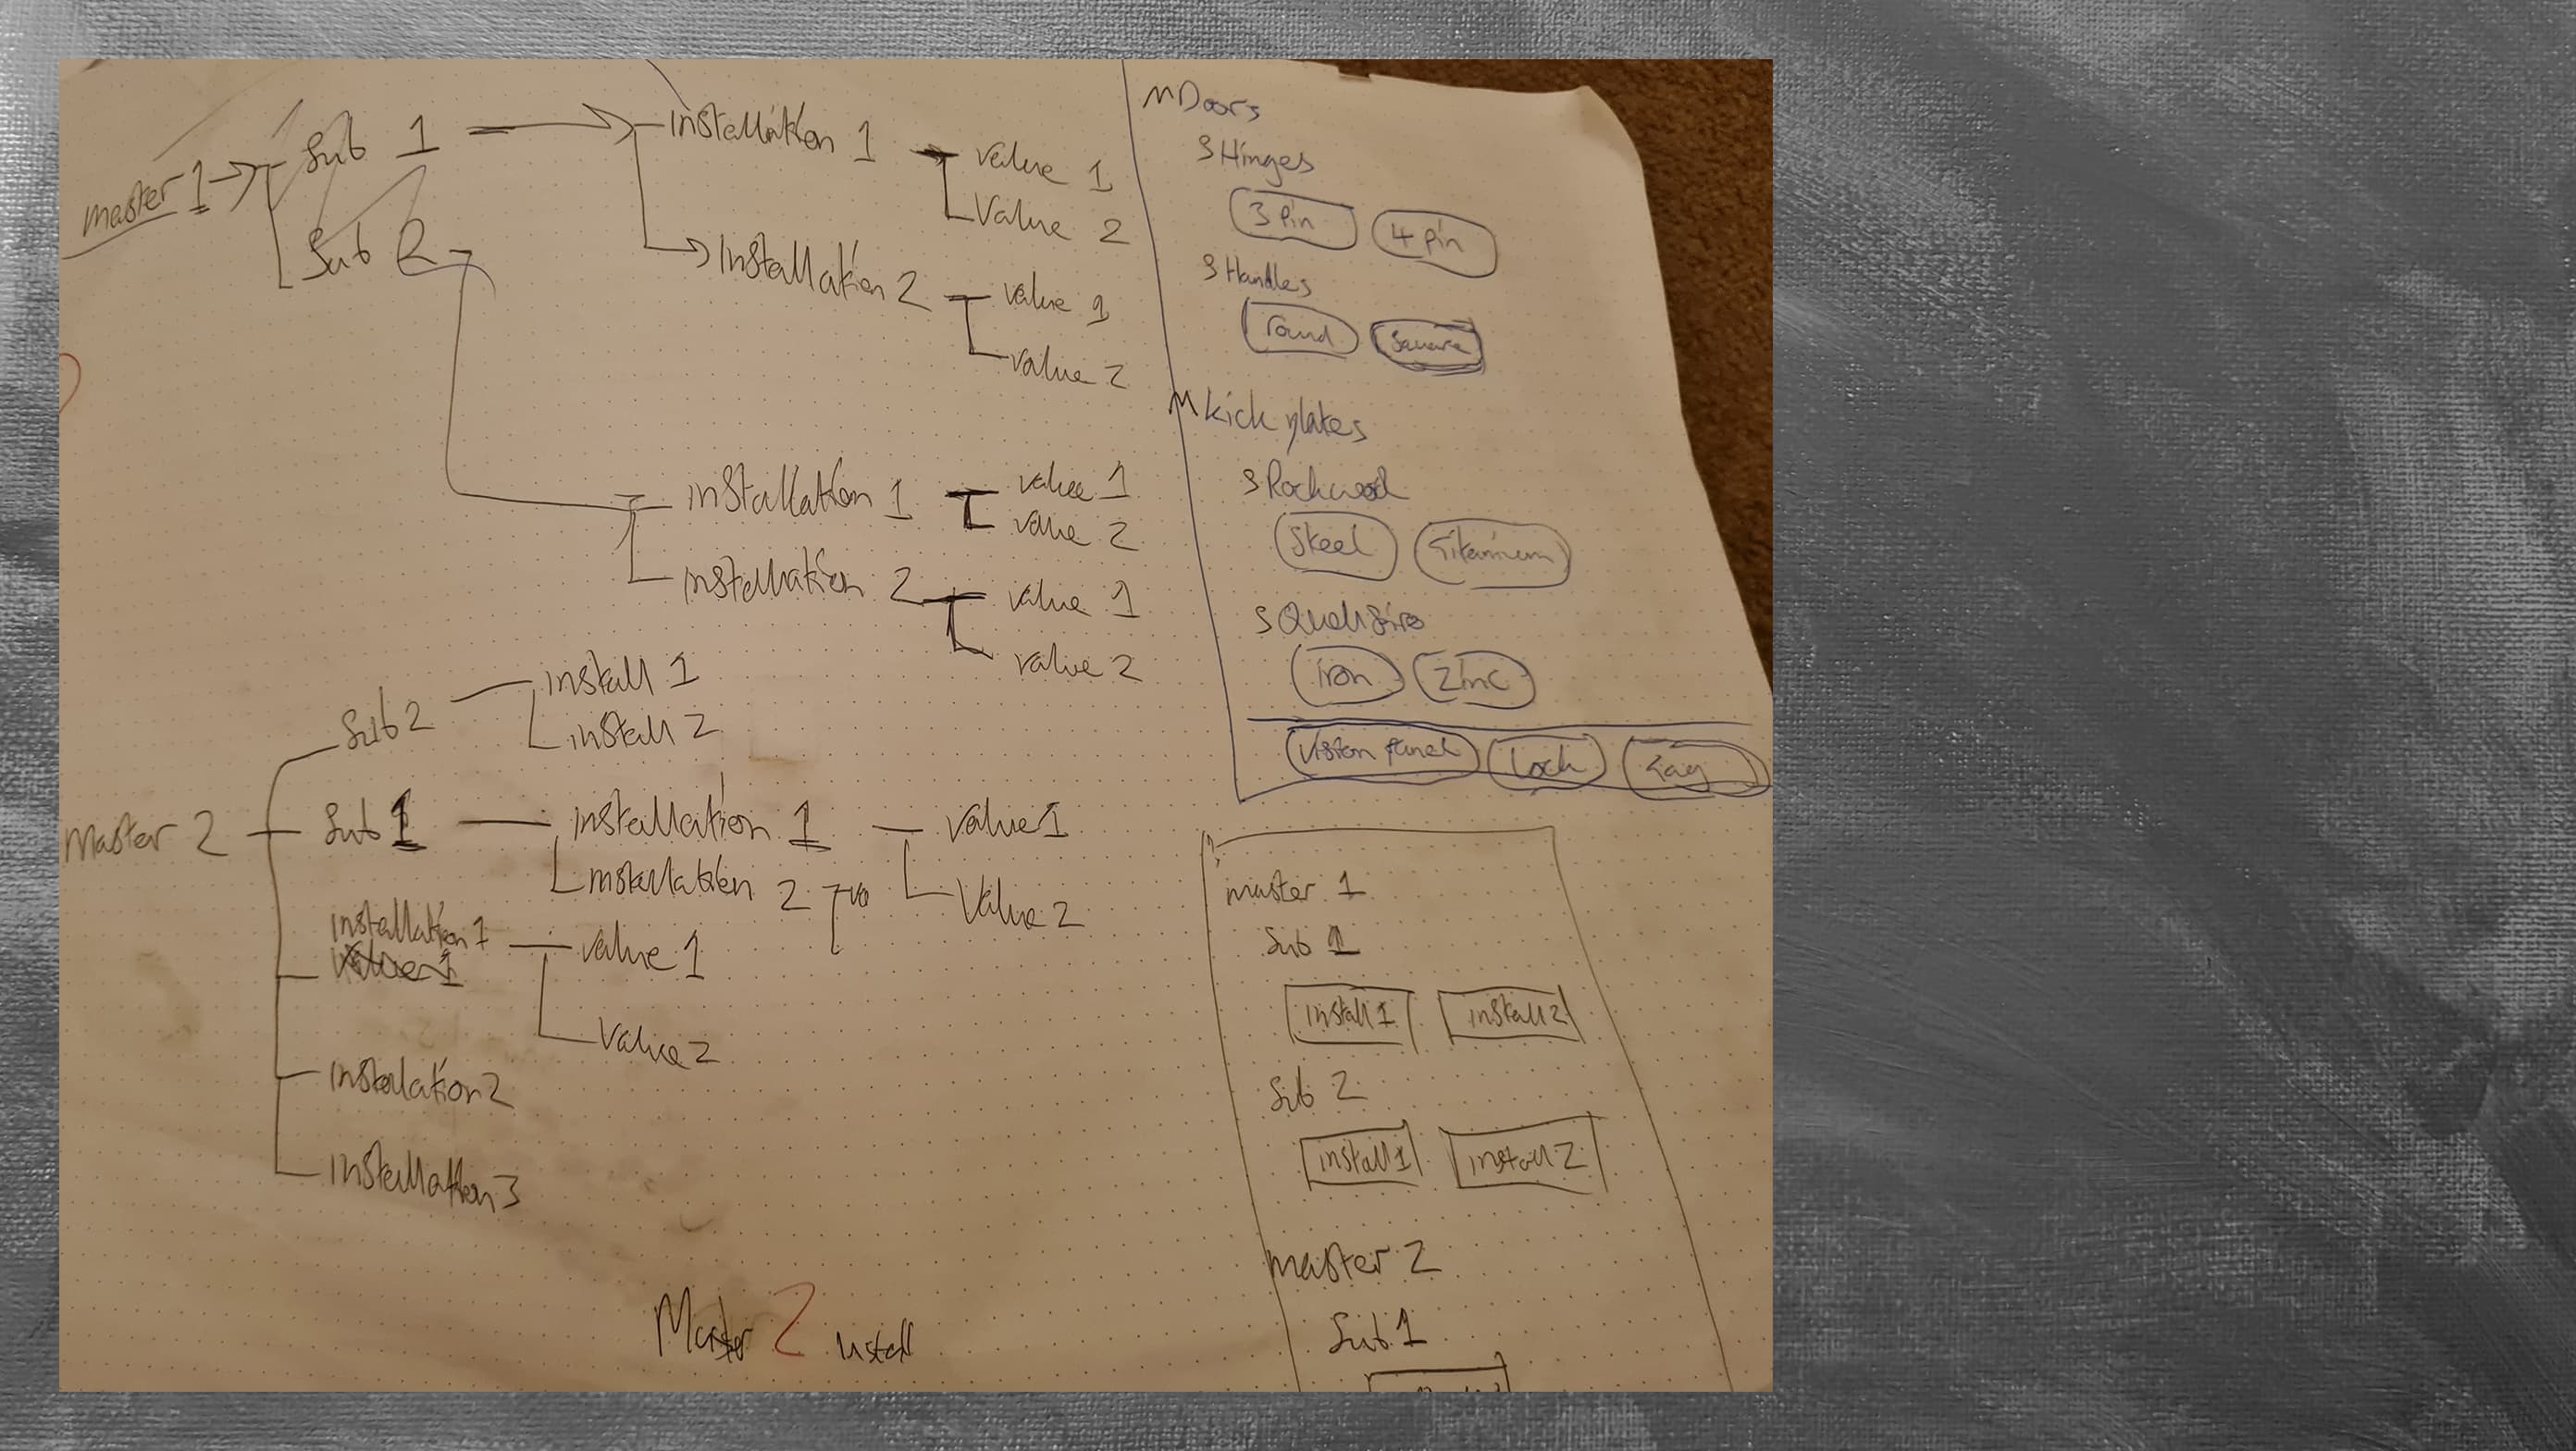 master 1
Sub 1
Sub 2
installation 1
value 1
Value 2
Installation 2
value 1
value 2
installation 1
value 1
value 2
installation 2
value 1
value 2
Master 2
Sub 2
install 1
install 2
Sub 1
installation 1
value 1
Value 2
installation 2
installation 1
value 1
value 1
Value 2
installation 2
installation 3
Master 2 install
M Doors
S Hinges
3 Pin 4 pin
S Handles
round Square
M kick plates
S Rockwood
Steel titanium
S
iron Zinc
Vision panel Lock
master 1
Sub 1
install 1 install 2
Sub 2
install 1 install 2
master 2
Sub 1